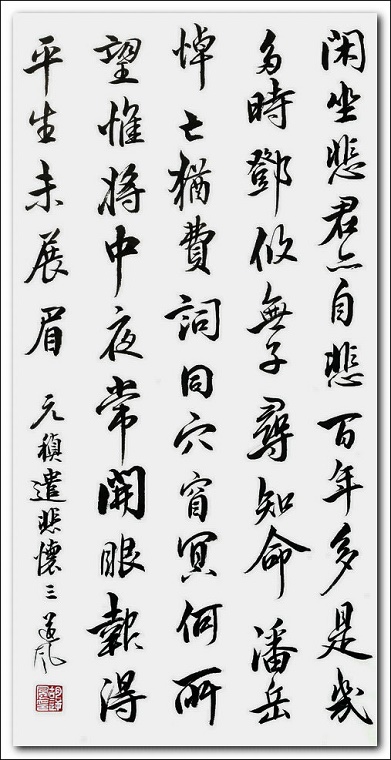 閑坐悲君亦自悲百年多是幾
多時鄧攸無子尋知命潘岳
悼亡猶費詞同穴窅冥何所
望惟將中夜常開眼報得
平生未展眉
元稹遣悲懷三 道風